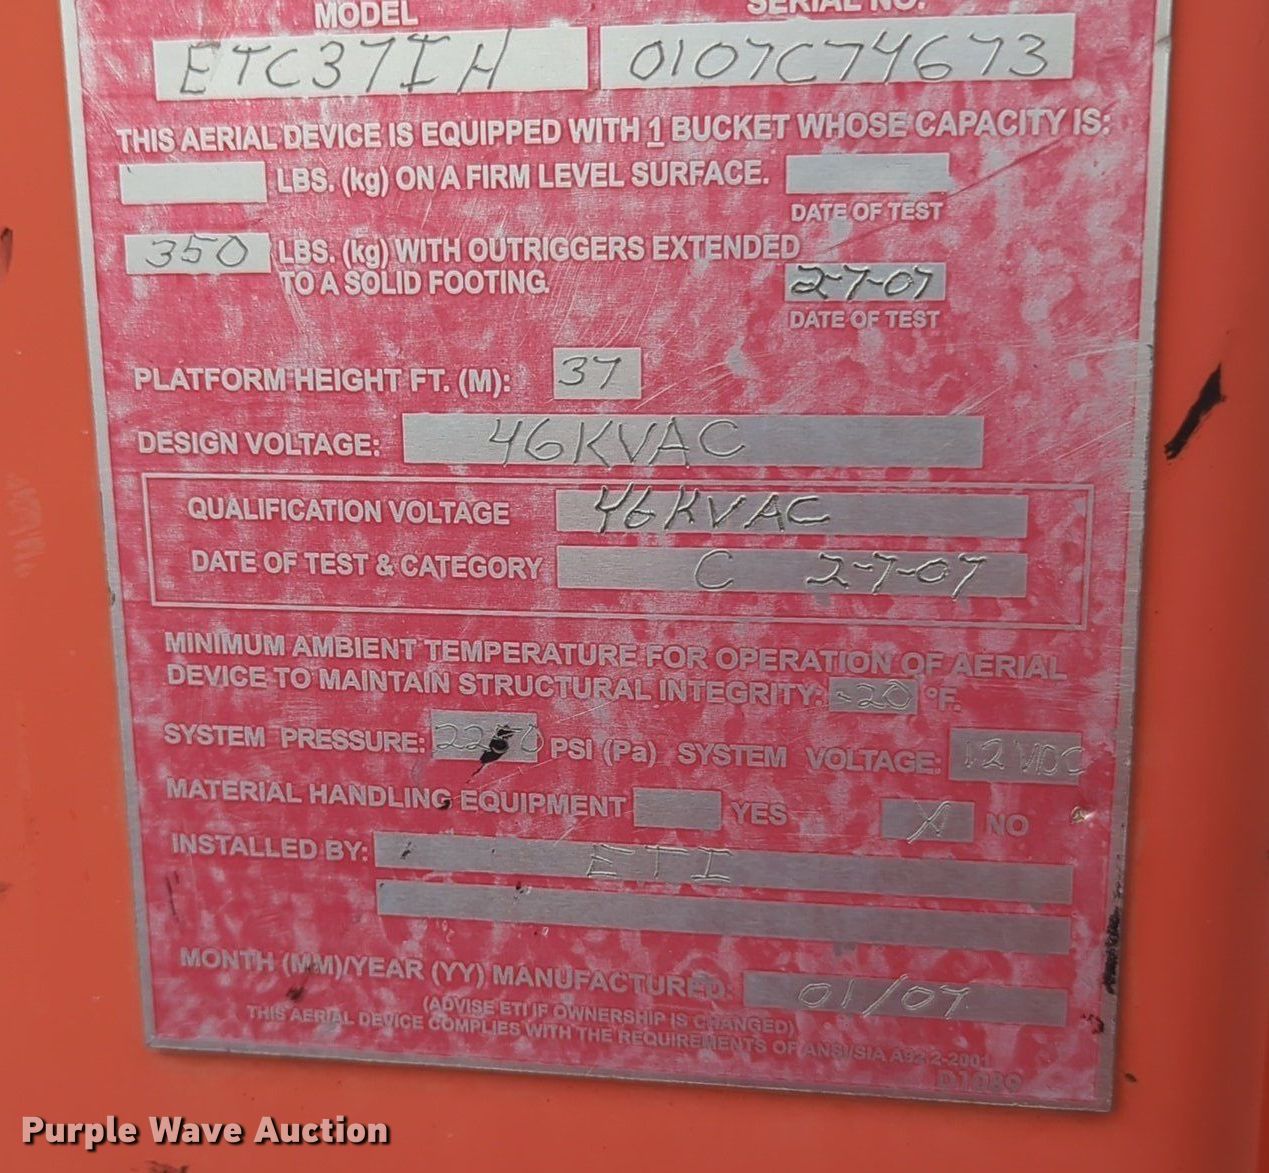 MODEL SERIAL NO.
ETC37IH 0107C74673
THIS AERIAL DEVICE IS EQUIPPED WITH 1 BUCKET WHOSE CAPACITY IS:
LBS. (kg) ON A FIRM LEVEL SURFACE.
DATE OF TEST
350 LBS. (kg) WITH OUTRIGGERS EXTENDED
TO A SOLID FOOTING. 2-7-07
DATE OF TEST
PLATFORM HEIGHT FT. (M): 37
DESIGN VOLTAGE: 46KVAC
QUALIFICATION VOLTAGE 46KVAC
DATE OF TEST & CATEGORY C 2-7-07
MINIMUM AMBIENT TEMPERATURE FOR OPERATION OF AERIAL
DEVICE TO MAINTAIN STRUCTURAL INTEGRITY: -20 °F.
SYSTEM PRESSURE: 2250 PSI (Pa) SYSTEM VOLTAGE: 12 VDC
MATERIAL HANDLING EQUIPMENT YES X NO
INSTALLED BY: ETI
MONTH (MM)/YEAR (YY) MANUFACTURED: 01/07
(ADVISE ETI IF OWNERSHIP IS CHANGED)
THIS AERIAL DEVICE COMPLIES WITH THE REQUIREMENTS OF ANSI/SIA A92.2-2001
D1089
Purple Wave Auction